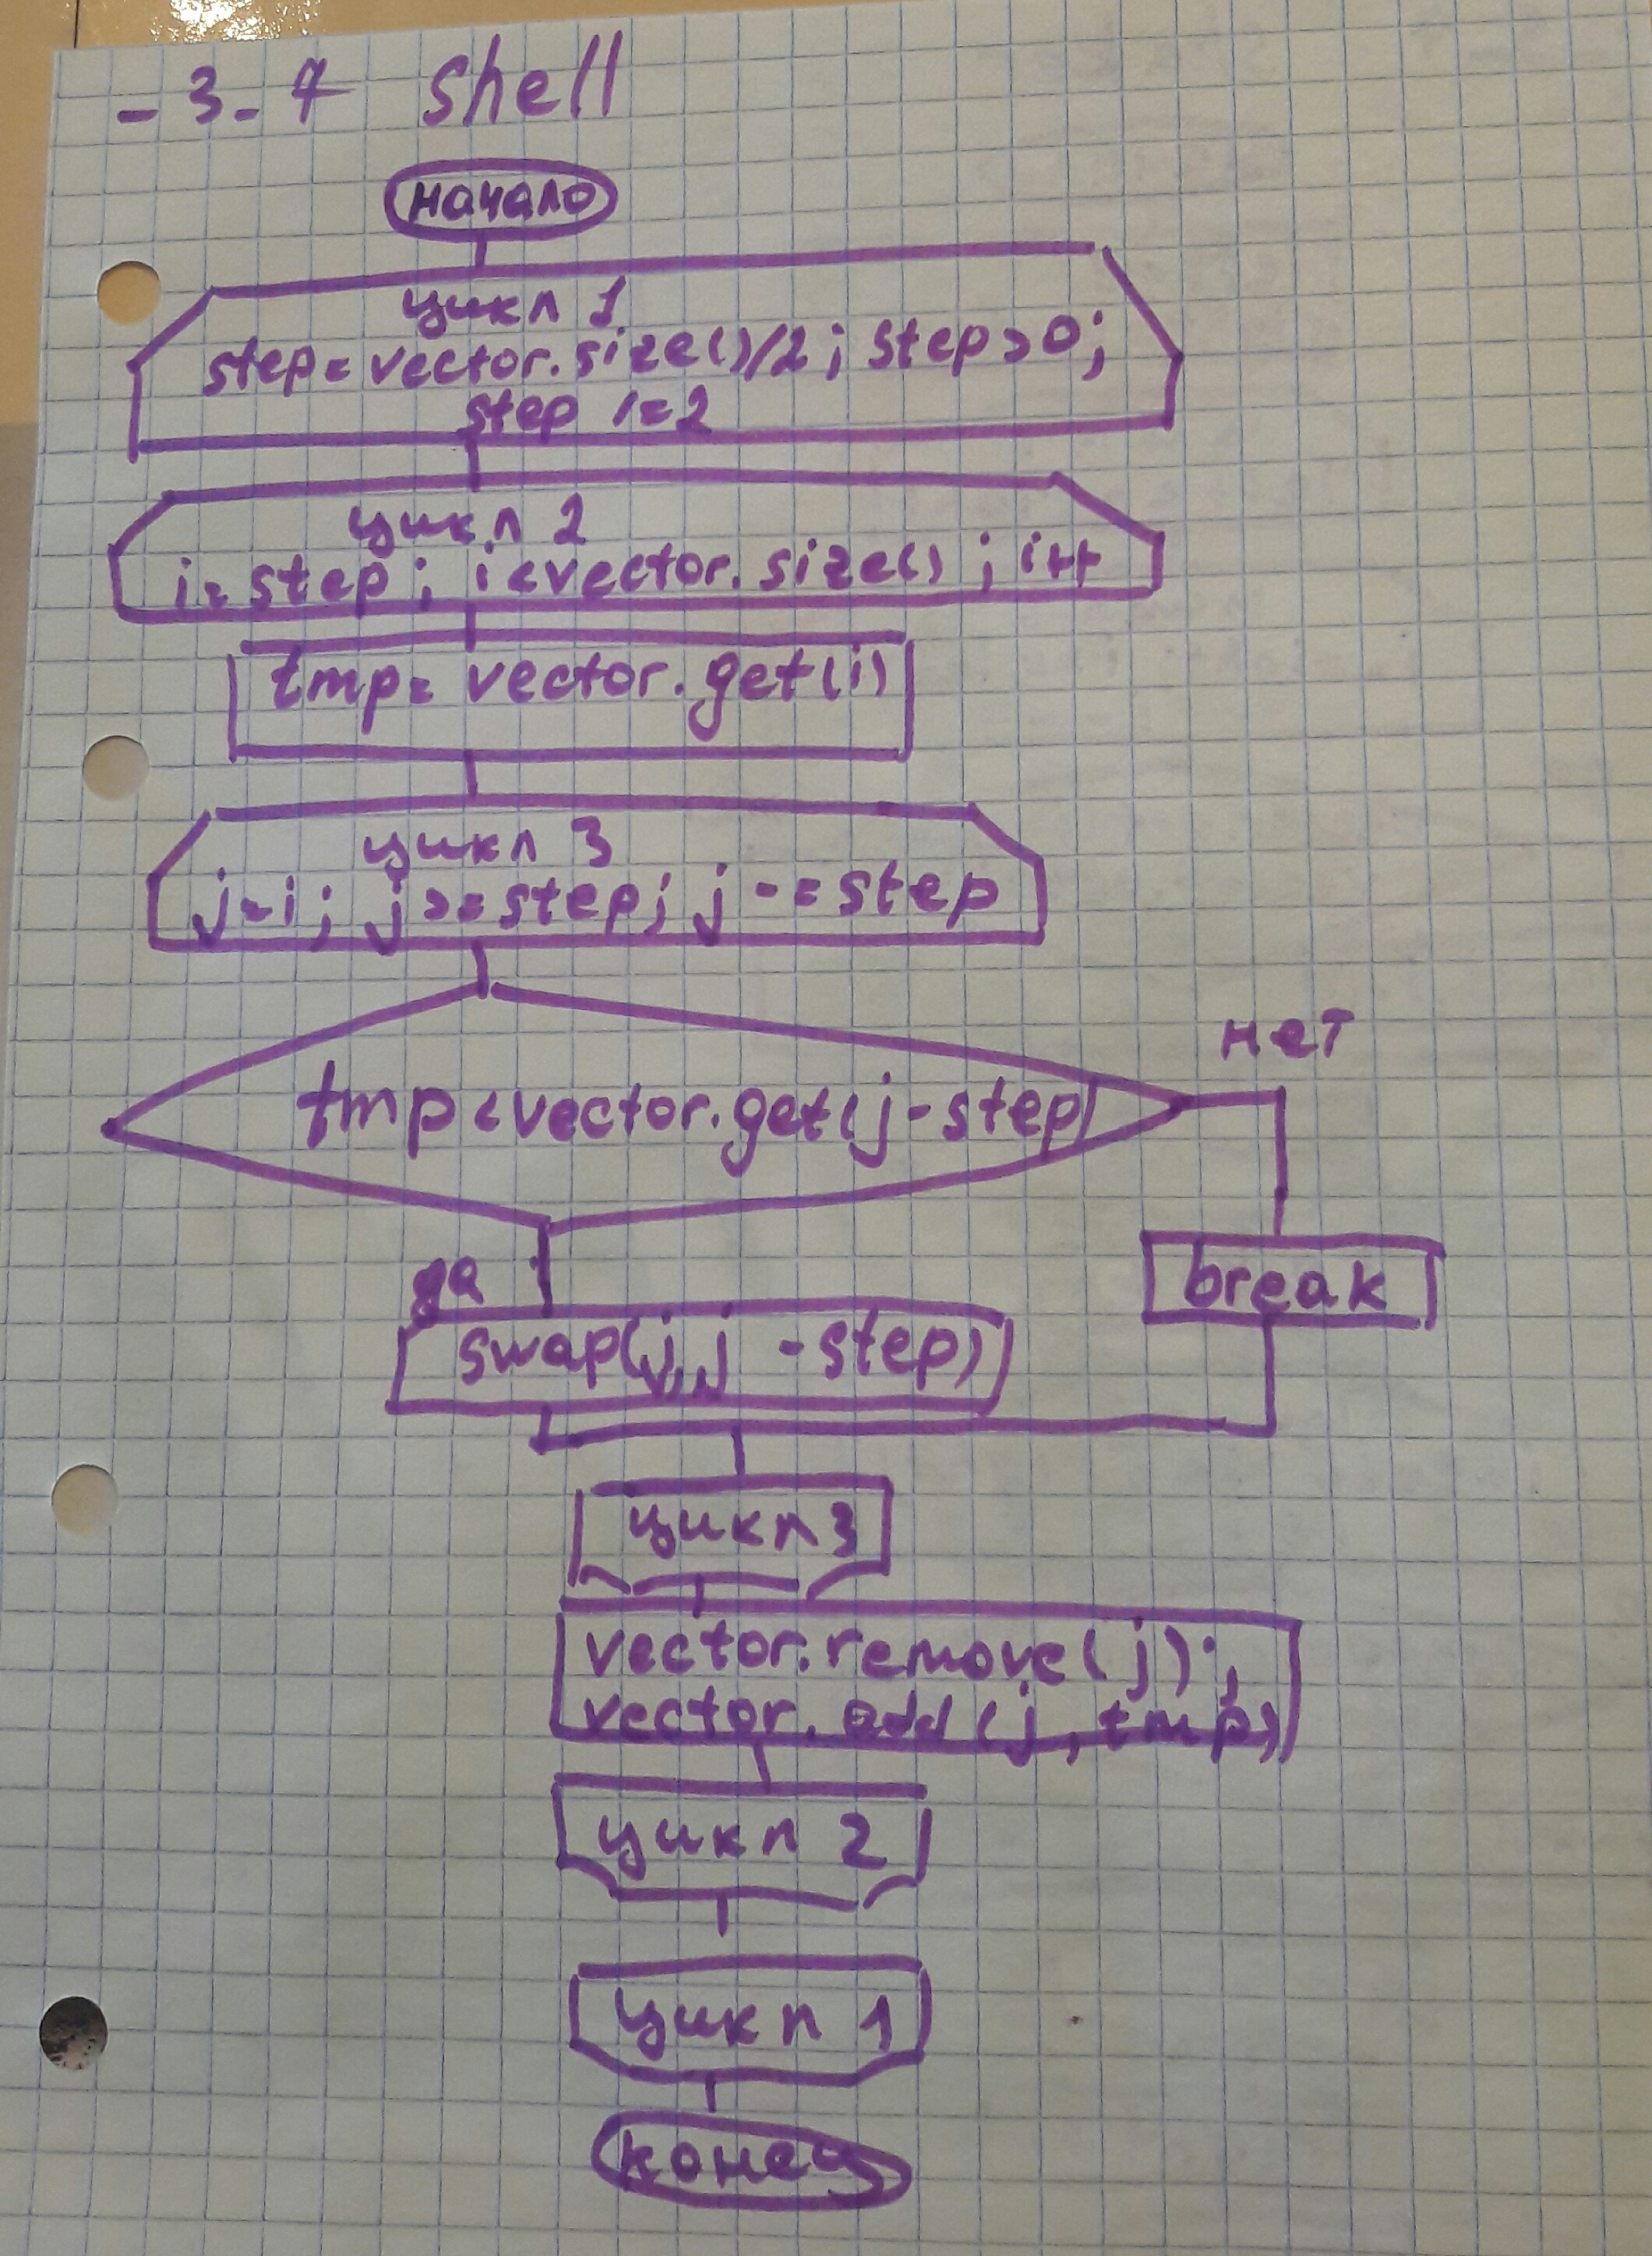 - 3 - 7 shell
начало
цикл 1
step = vector.size()/2; step > 0;
step /= 2
цикл 2
i = step; i < vector.size(); i++
tmp = vector.get(i)
цикл 3
j = i; j >= step; j -= step
нет
tmp < vector.get(j - step)
да
break
swap(j, j - step)
цикл 3
vector.remove(j);
vector.add(j, tmp)
цикл 2
цикл 1
конец